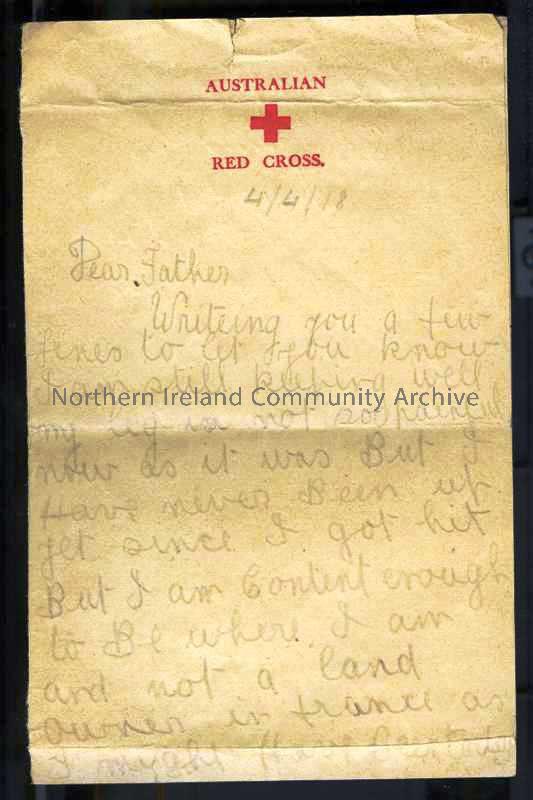 AUSTRALIAN
RED CROSS.
4/4/18
Dear Father
Writeing you a few
lines to let you know
I am still keeping well
Northern Ireland Community Archive
my leg is not so painful
now as it was But I
Have never Been up
yet since I got hit
But I am Content enough
to Be where I am
and not a land
owner in france as
I might Have